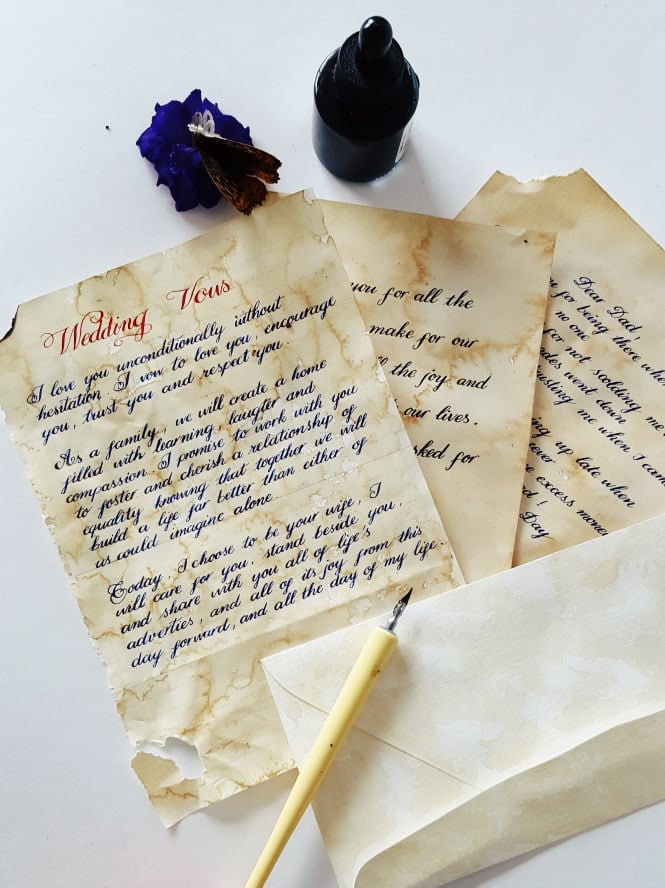 Wedding Vous
I love you unconditionally without
hesitation. I vow to love you, encourage
you, trust you and respect you.
As a family, we will create a home
filled with learning, laugter and
compassion. I promise to work with you
to foster and cherish a relationship of
equality knowing that together we will
build a life far better than either of
us could imagine alone.
Today, I choose to be your wife, I
will care for you, stand beside you,
and share with you all of life's
adverties, and all of its joy from this
day forward, and all the day of my life.
you for all the
make for our
the joy and
our lives.
sked for
Dear Dad,
for being there whe
no one
for not scolding me
des went down
usting me when I cam
ing up late when
ever
d!
e excess mone
Day